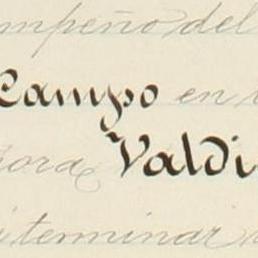 mpeño del
Campo en
ora Valdi
terminar